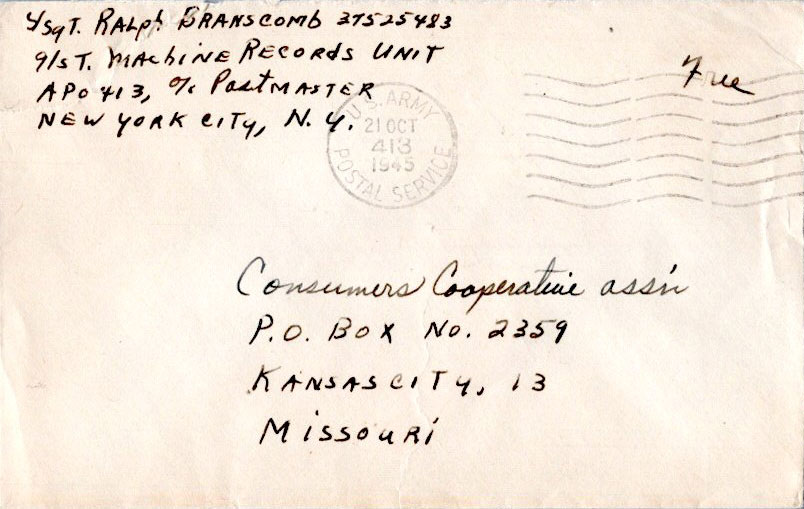 T/Sgt. Ralph Branscomb 37525483
91st. Machine Records Unit
APO 413, % Postmaster
New York City, N.Y.
Free
U.S. ARMY
21 OCT
413
1945
POSTAL SERVICE
Consumers Cooperative ass'n
P.O. Box No. 2359
Kansas City, 13
Missouri